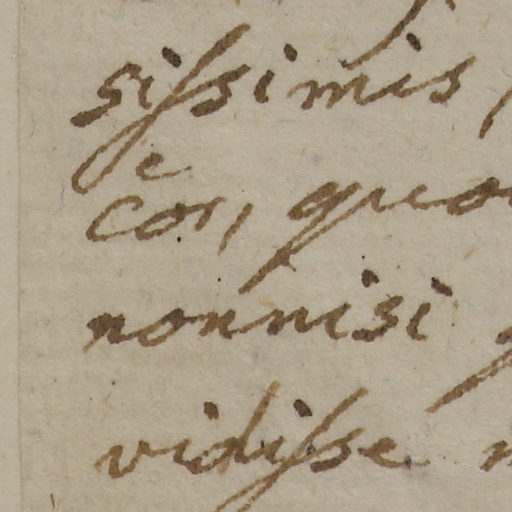 siſsimis,
cor, quo
nonnisi
vidiſse